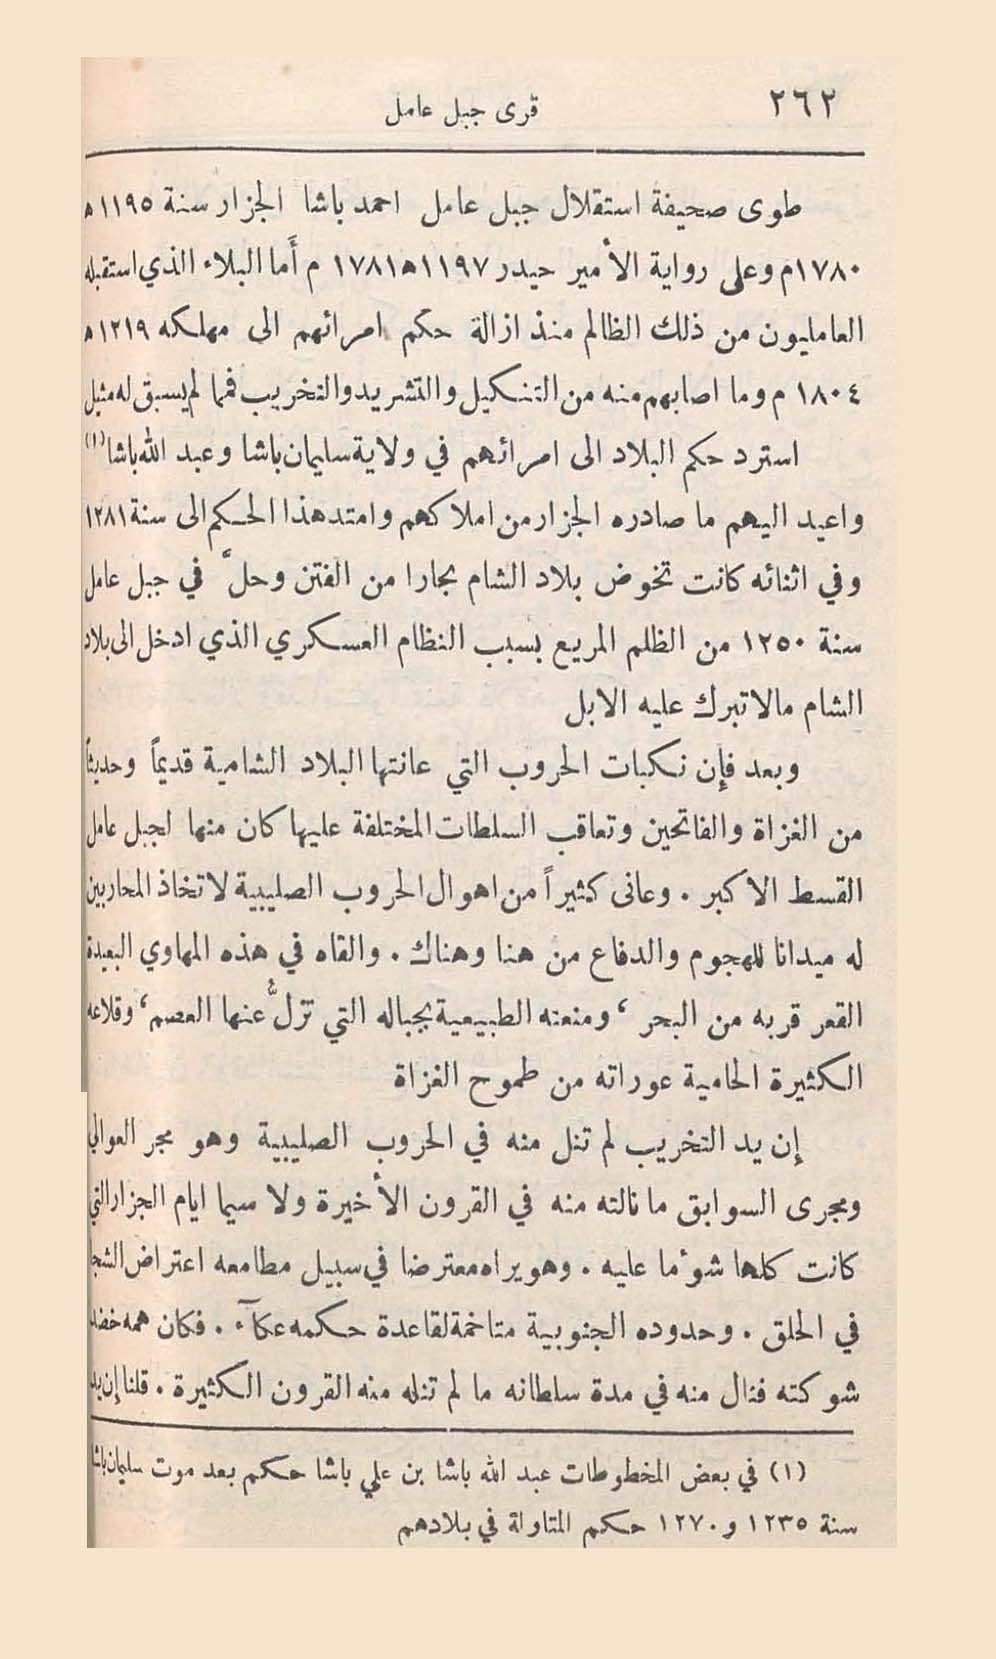 ٢٦٢
قرى جبل عامل
طوى صحيفة استقلال جبل عامل احمد باشا الجزار سنة ١١٩٥ ه
١٧٨٠م وعلى رواية الأمير حيدر ١١٩٧ه ١٧٨١ م أَما البلاء الذي استقبله
العامليون من ذلك الظالم منذ ازالة حكم امرائهم الى مهلكه ١٢١٩ ه
١٨٠٤ م وما اصابهم منه من التنكيل والتشريد والتخريب فمما لم يسبق له مثيل
استرد حكم البلاد الى امرائهم في ولاية سليمان باشا وعبد الله باشا (١)
واعيد اليهم ما صادره الجزار من املاكهم وامتد هذا الحكم الى سنة ١٢٨١
وفي اثنائه كانت تخوض بلاد الشام بحارا من الفتن وحلّ في جبل عامل
سنة ١٢٥٠ من الظلم المريع بسبب النظام العسكري الذي ادخل الى بلاد
الشام مالا تبرك عليه الابل
وبعد فإن نكبات الحروب التي عانتها البلاد الشامية قديماً وحديثاً
من الغزاة والفاتحين وتعاقب السلطات المختلفة عليها كان منها لجبل عامل
القسط الاكبر . وعانى كثيراً من اهوال الحروب الصليبية لاتخاذ المحاربين
له ميدانا للهجوم والدفاع من هنا وهناك . والقاه في هذه المهاوي البعيدة
القعر قربه من البحر ، ومنعته الطبيعية بجباله التي تزلُّ عنها العصم ، وقلاعه
الكثيرة الحامية عوراته من طموح الغزاة
إن يد التخريب لم تنل منه في الحروب الصليبية وهو مجر العوالي
ومجرى السوابق ما نالته منه في القرون الأخيرة ولا سيما ايام الجزار التي
كانت كلها شؤما عليه . وهو يراه معترضا في سبيل مطامعه اعتراض الشجا
في الحلق . وحدوده الجنوبية متاخمة لقاعدة حكمه عكآء . فكان همه خضد
شوكته فنال منه في مدة سلطانه ما لم تنله منه القرون الكثيرة . قلنا إن يد
(١) في بعض المخطوطات عبد الله باشا بن علي باشا حكم بعد موت سليمان باشا
سنة ١٢٣٥ و ١٢٧٠ حكم المتاولة في بلادهم